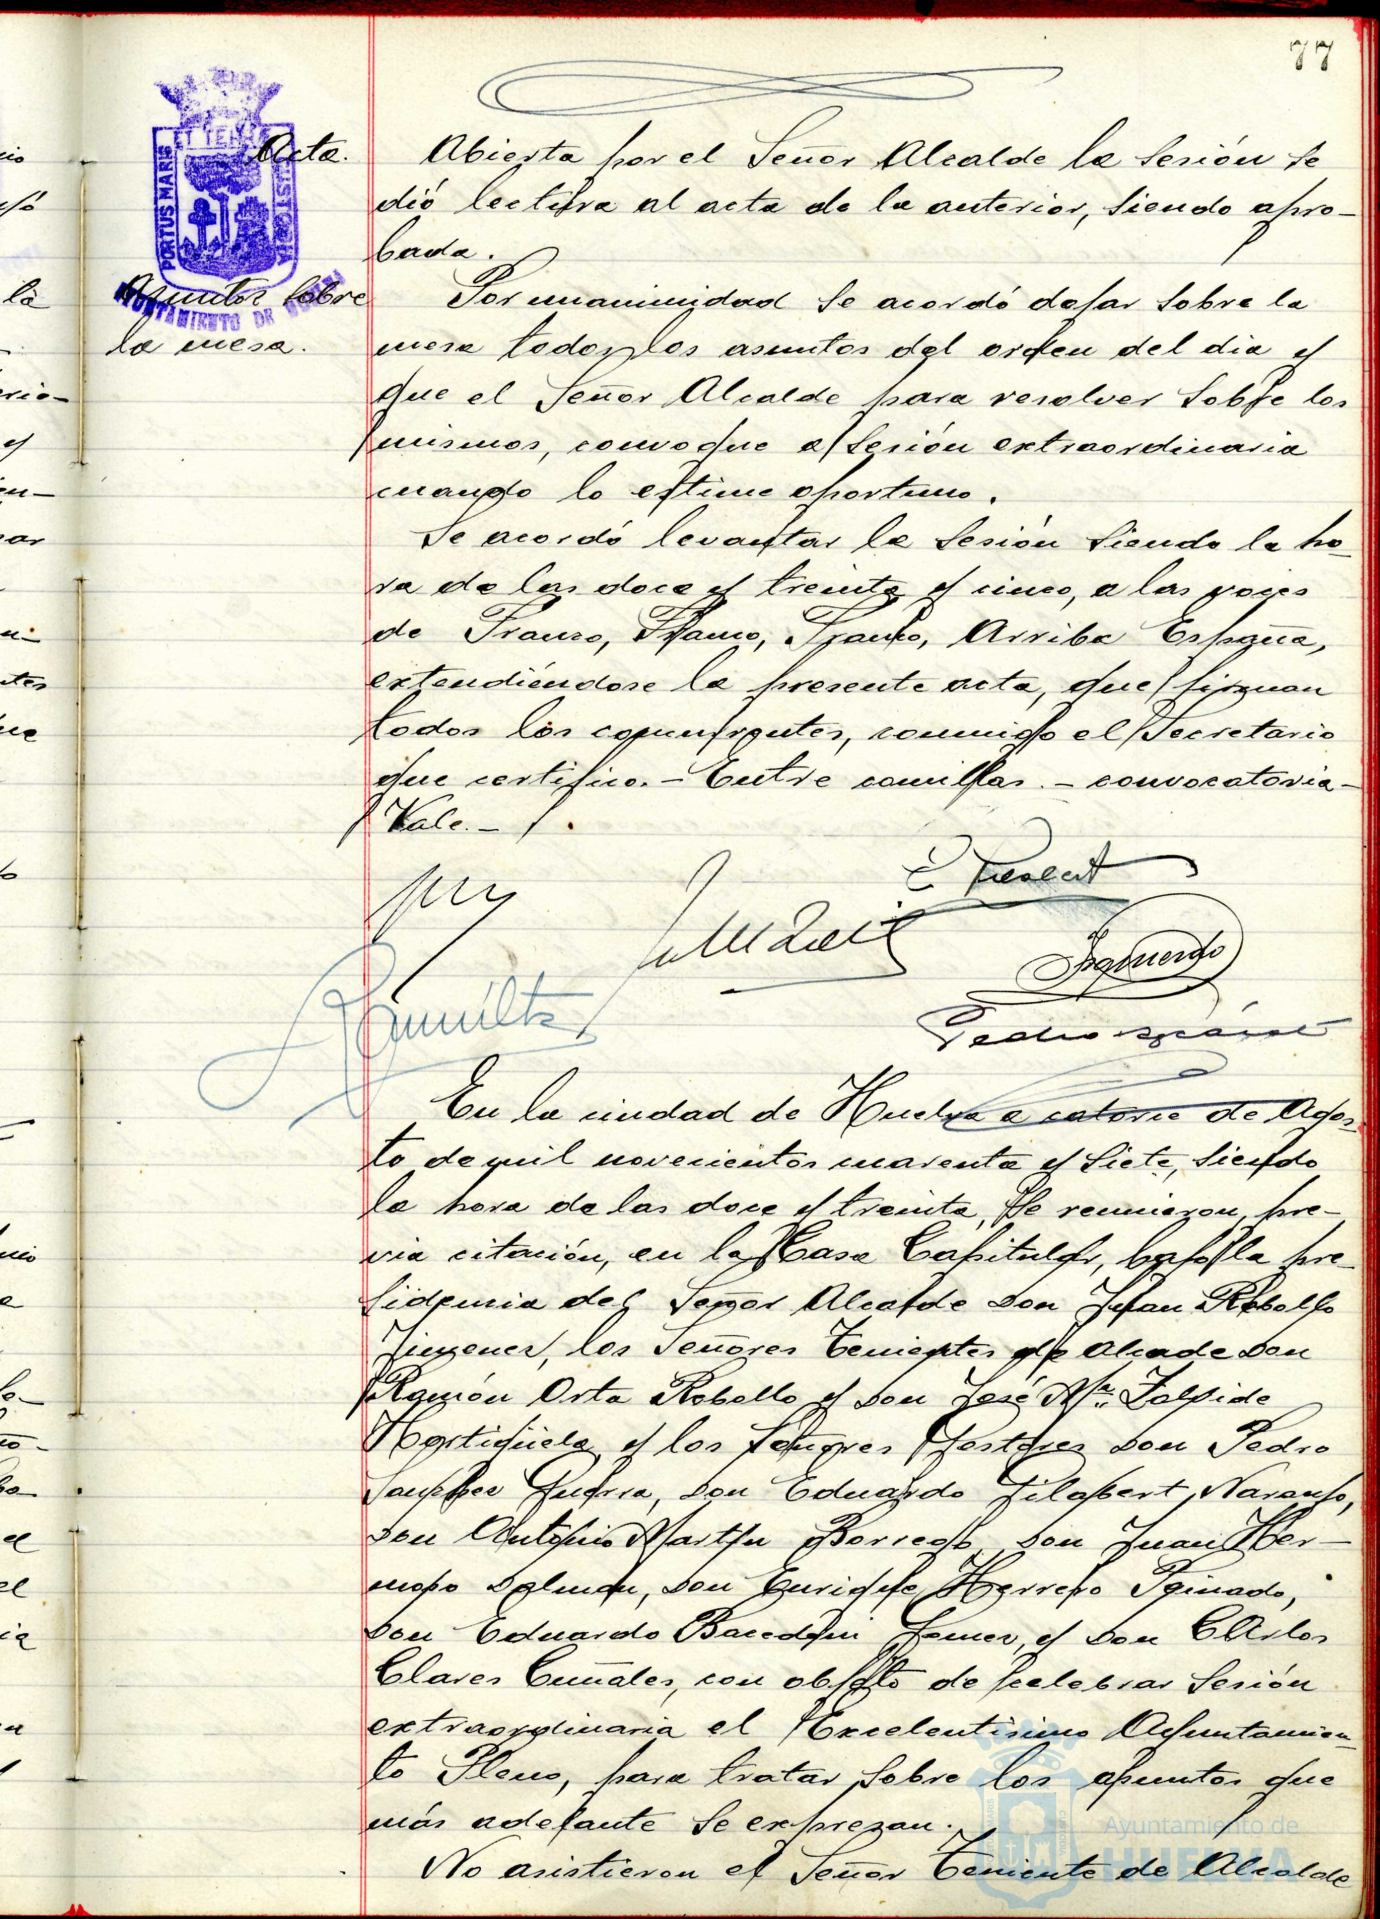 77
Acta.
Abierta por el Señor Alcalde la Sesión se
dió lectura al acta de la anterior, siendo apro-
bada.
Asuntos sobre
la mesa.
Por unanimidad se acordó dejar sobre la
mesa todos los asuntos del orden del dia y
que el Señor Alcalde para resolver sobre los
mismos, convoque a sesión extraordinaria
cuando lo estime oportuno.
Se acordó levantar la Sesión siendo la ho-
ra de las doce y treinta y cinco, a las voces
de Franco, Franco, Franco, Arriba España,
extendiéndose la presente acta, que firman
todos los concurrentes, conmigo el Secretario
que certifico. - Entre comillas. - convocatoria -
Vale. -
Izquierdo
Pedro
En la ciudad de Huelva a catorce de Agos-
to de mil novecientos cuarenta y siete, siendo
la hora de las doce y treinta, se reunieron, pre-
via citación, en la Casa Capitular, bajo la pre-
sidencia del Señor Alcalde Don Juan Rebollo
Jimenez, los Señores Tenientes de Alcade Don
Ramón Orta Rebollo y Don José Mª. Zalvide
Hortigüela y los Señores Gestores Don Pedro
Sanchez Guerra, Don Eduardo Gilabert Naranjo,
Don Antonio Martín Borrego, Don Juan Her-
moso Delmon, Don Enrique Herrero Peinado,
Don Eduardo Gomez, y Don CArlos
Clares Cuñales, con objeto de celebrar Sesión
extraordinaria el Excelentisimo Ayuntamien-
to Pleno, para tratar sobre los asuntos que
más adelante se expresan.
No asistieron el Señor Teniente de Alcalde
PORTUS MARIS ET TERRE CUSTODIA
AYUNTAMIENTO DE HUELVA
Ayuntamiento de
HUELVA